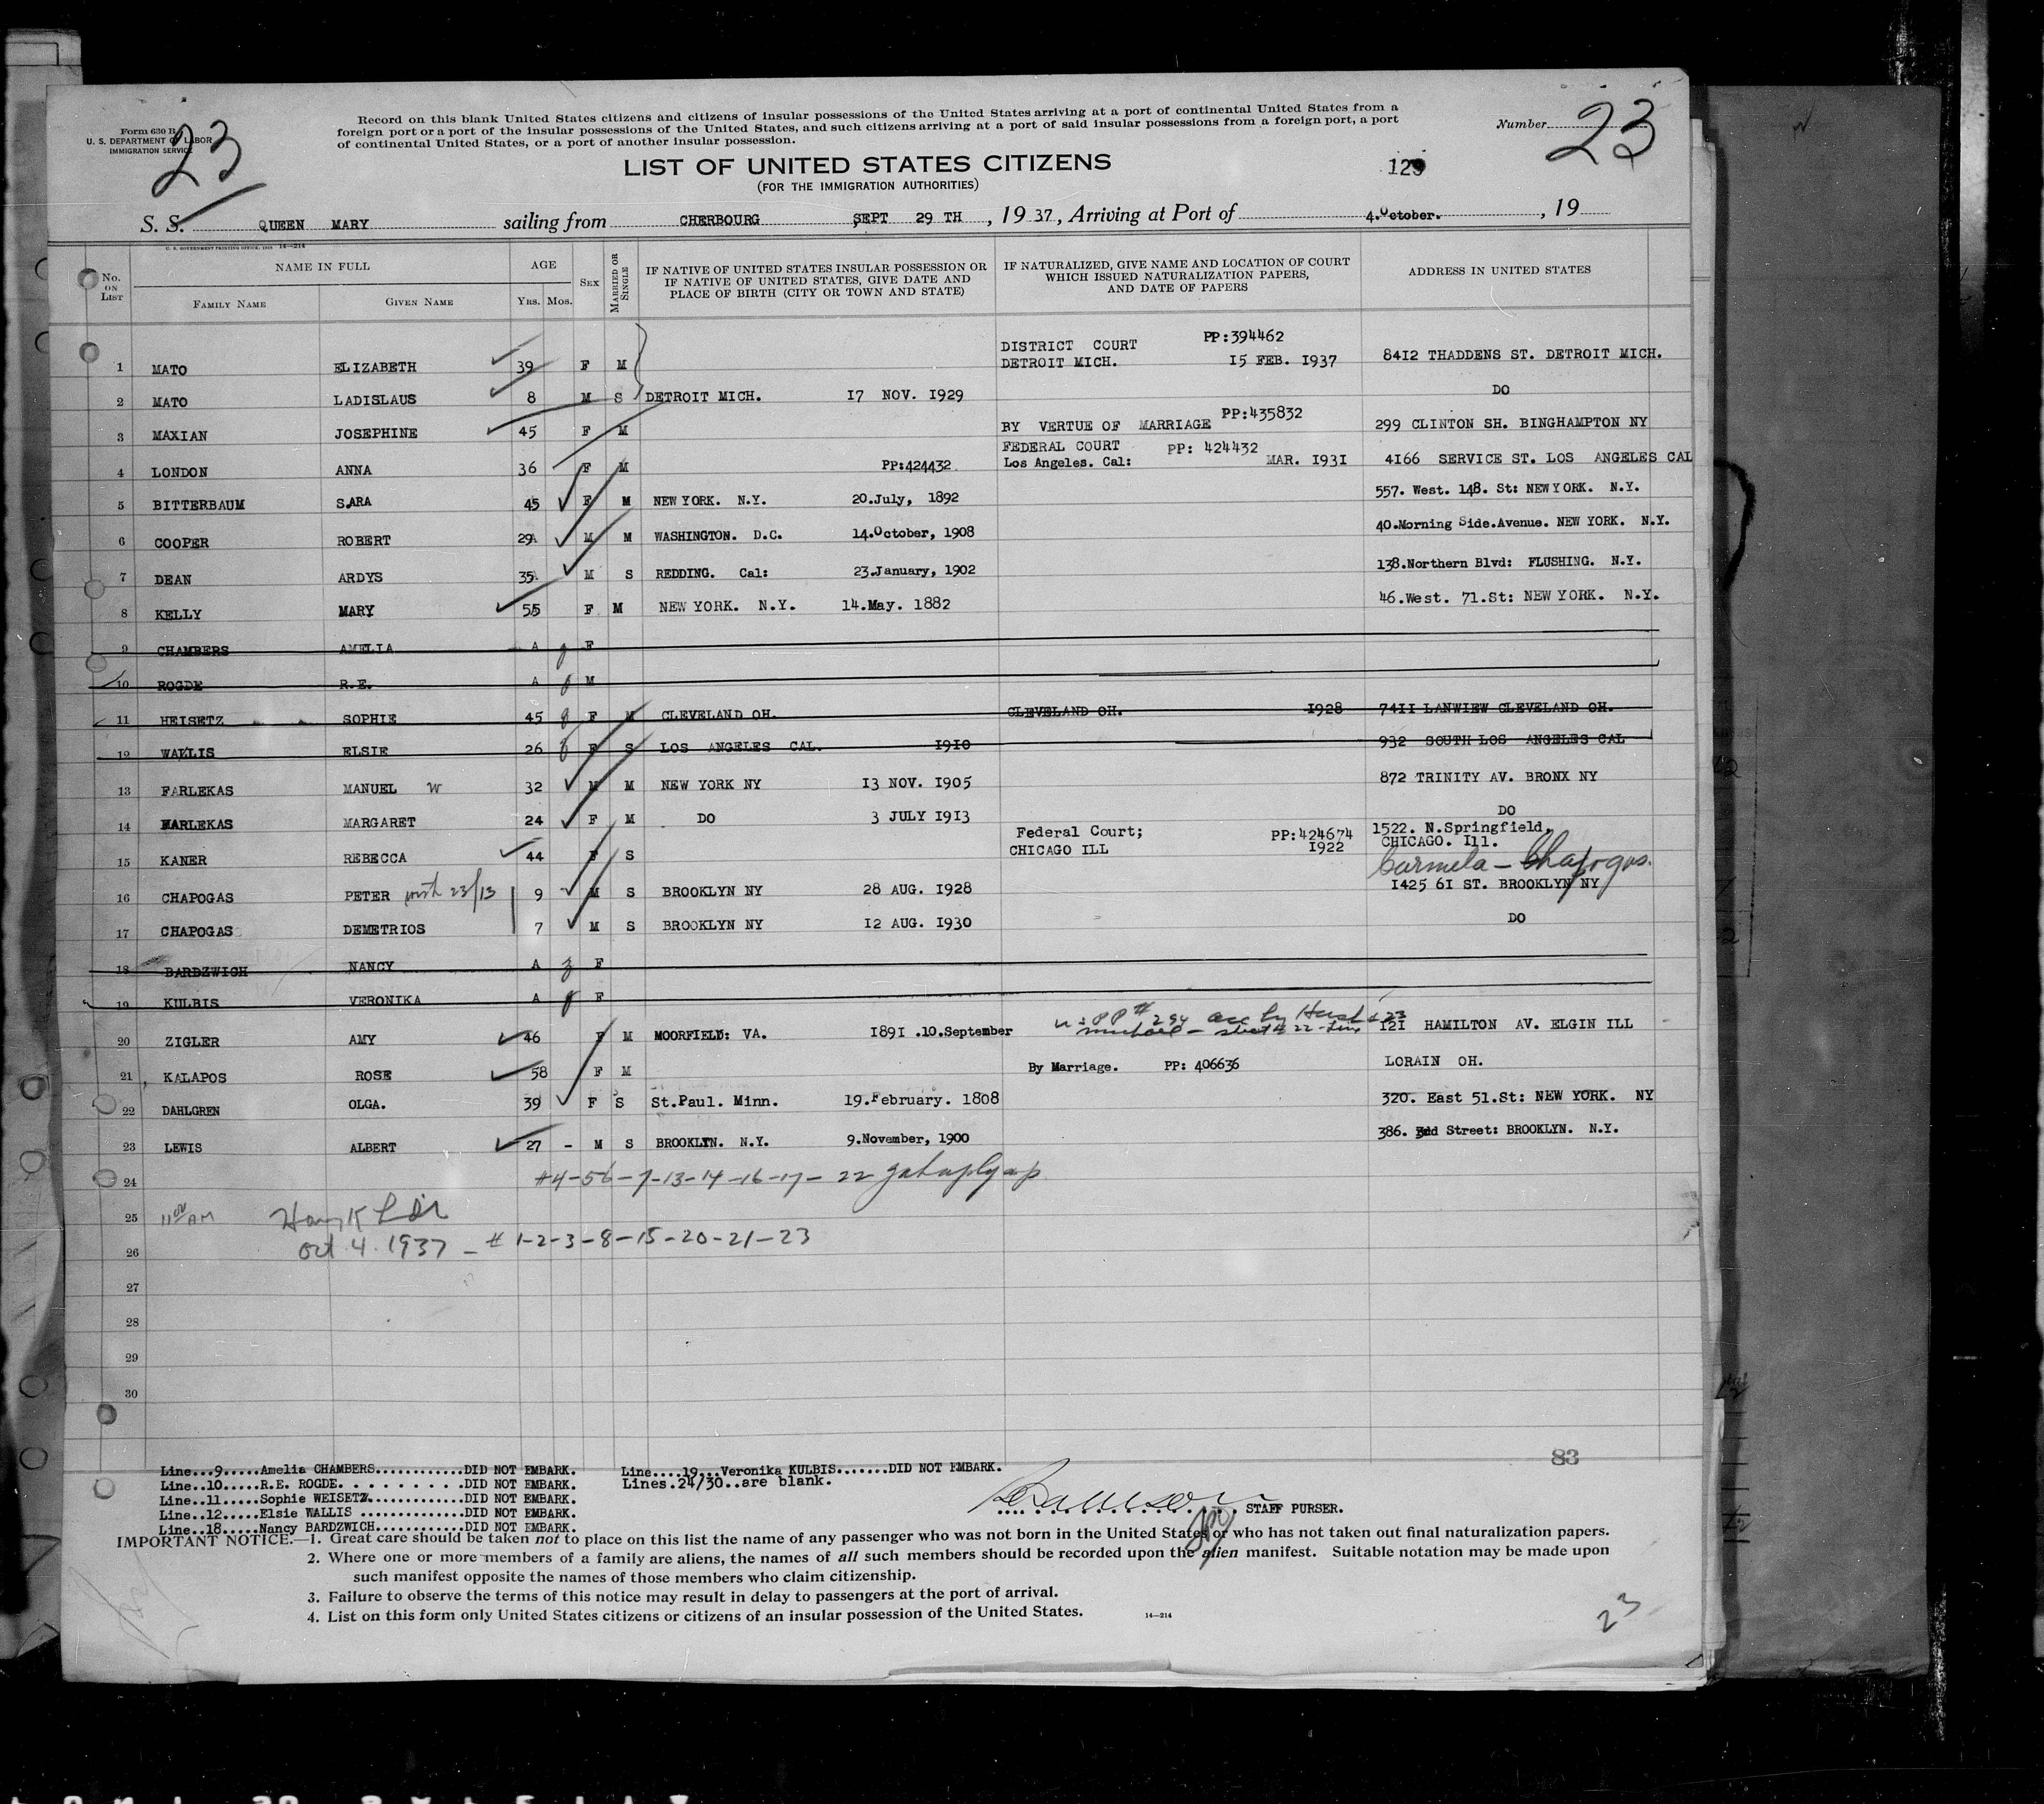 Form 630 B
U. S. DEPARTMENT OF LABOR
IMMIGRATION SERVICE
23
Record on this blank United States citizens and citizens of insular possessions of the United States arriving at a port of continental United States from a
foreign port or a port of the insular possessions of the United States, and such citizens arriving at a port of said insular possessions from a foreign port, a port
of continental United States, or a port of another insular possession.
Number 23
LIST OF UNITED STATES CITIZENS
(FOR THE IMMIGRATION AUTHORITIES)
129
S. S. QUEEN MARY sailing from CHERBOURG SEPT 29 TH, 1937, Arriving at Port of 4.October. , 19
U. S. GOVERNMENT PRINTING OFFICE, 1928 14—214
No. ON LIST NAME IN FULL AGE SEX MARRIED OR SINGLE IF NATIVE OF UNITED STATES INSULAR POSSESSION OR IF NATIVE OF UNITED STATES, GIVE DATE AND PLACE OF BIRTH (CITY OR TOWN AND STATE) IF NATURALIZED, GIVE NAME AND LOCATION OF COURT WHICH ISSUED NATURALIZATION PAPERS, AND DATE OF PAPERS ADDRESS IN UNITED STATES
FAMILY NAME GIVEN NAME YRS. MOS.
DISTRICT COURT PP:394462
1 MATO ELIZABETH 39 F M DETROIT MICH. 15 FEB. 1937 8412 THADDENS ST. DETROIT MICH.
2 MATO LADISLAUS 8 M S DETROIT MICH. 17 NOV. 1929 DO
3 MAXIAN JOSEPHINE 45 F M BY VERTUE OF MARRIAGE PP:435832 299 CLINTON SH. BINGHAMPTON NY
FEDERAL COURT PP: 424432
4 LONDON ANNA 36 F M PP:424432 Los Angeles. Cal: MAR. 1931 4166 SERVICE ST. LOS ANGELES CAL
5 BITTERBAUM SARA 45 F M NEW YORK. N.Y. 20.July, 1892 557. West. 148. St: NEW YORK. N.Y.
6 COOPER ROBERT 29 M M WASHINGTON. D.C. 14.October, 1908 40.Morning Side.Avenue. NEW YORK. N.Y.
7 DEAN ARDYS 35 M S REDDING. Cal: 23.January, 1902 138.Northern Blvd: FLUSHING. N.Y.
8 KELLY MARY 55 F M NEW YORK. N.Y. 14.May. 1882 46.West. 71.St: NEW YORK. N.Y.
9 CHAMBERS AMELIA A F
10 ROGDE R.E. A M
11 HEISETZ SOPHIE 45 F M CLEVELAND OH. CLEVELAND OH. 1928 7411 LANWIEW CLEVELAND OH.
12 WALLIS ELSIE 26 F S LOS ANGELES CAL. 1910 932 SOUTH LOS ANGELES CAL
13 FARLEKAS MANUEL W 32 M M NEW YORK NY 13 NOV. 1905 872 TRINITY AV. BRONX NY
14 FARLEKAS MARGARET 24 F M DO 3 JULY 1913 DO
Federal Court; PP:424674 1522. N.Springfield,
15 KANER REBECCA 44 F S CHICAGO ILL 1922 CHICAGO. Ill.
Carmela — Chapogas.
16 CHAPOGAS PETER with 23/13 9 M S BROOKLYN NY 28 AUG. 1928 1425 61 ST. BROOKLYN NY
17 CHAPOGAS DEMETRIOS 7 M S BROOKLYN NY 12 AUG. 1930 DO
18 BARDZWICH NANCY A F
19 KULBIS VERONIKA A F
20 ZIGLER AMY 46 F M MOORFIELD: VA. 1891 .10.September 121 HAMILTON AV. ELGIN ILL
21 KALAPOS ROSE 58 F M By Marriage. PP: 406636 LORAIN OH.
22 DAHLGREN OLGA. 39 F S St.Paul. Minn. 19.February. 1808 320. East 51.St: NEW YORK. NY
23 LEWIS ALBERT 27 - M S BROOKLYN. N.Y. 9.November, 1900 386. Street: BROOKLYN. N.Y.
24 #4-56-7-13-14-16-17-22
25 11 00 AM
26 Oct 4. 1937 - # 1-2-3-8-15-20-21-23
27
28
29
30
83
Line...9.....Amelia CHAMBERS............DID NOT EMBARK. Line....19...Veronika KULBIS.......DID NOT EMBARK.
Line..10.....R.E. ROGDE. . . . . . . . . .DID NOT EMBARK. Lines.24/30..are blank.
Line..11.....Sophie WEISETZ.............DID NOT EMBARK.
Line..12.....Elsie WALLIS ..............DID NOT EMBARK. STAFF PURSER.
Line..18.....Nancy BARDZWICH............DID NOT EMBARK.
IMPORTANT NOTICE.—1. Great care should be taken not to place on this list the name of any passenger who was not born in the United States or who has not taken out final naturalization papers.
2. Where one or more members of a family are aliens, the names of all such members should be recorded upon the alien manifest. Suitable notation may be made upon
such manifest opposite the names of those members who claim citizenship.
3. Failure to observe the terms of this notice may result in delay to passengers at the port of arrival.
4. List on this form only United States citizens or citizens of an insular possession of the United States. 14—214
23